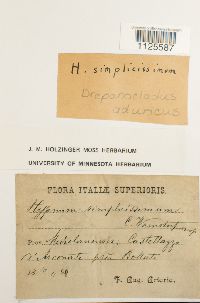 1125587
H. simplicissimum
Drepanocladus
aduncus
J. M. HOLZINGER MOSS HERBARIUM
UNIVERSITY OF MINNESOTA HERBARIUM
FLORA ITALÆ SUPERIORIS.
Hypnum simplicissimum
C. Warnstorf
Castellazzo
d'Arconate
F. Aug. Artaria.